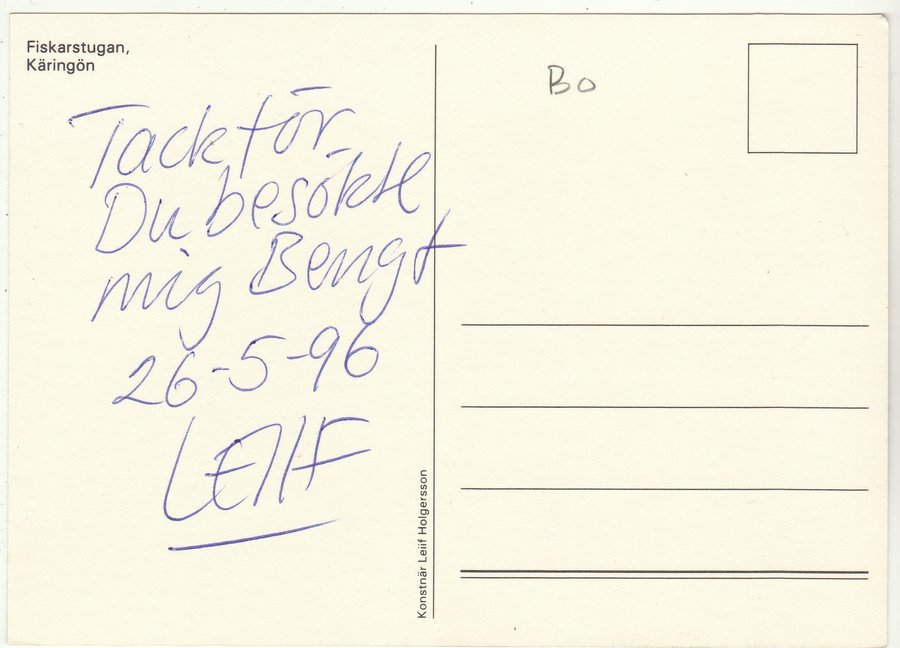 Fiskarstugan,
Käringön
Tack för
Du besökte
mig Bengt
26-5-96
LEIIF
Konstnär Leiif Holgersson
Bo